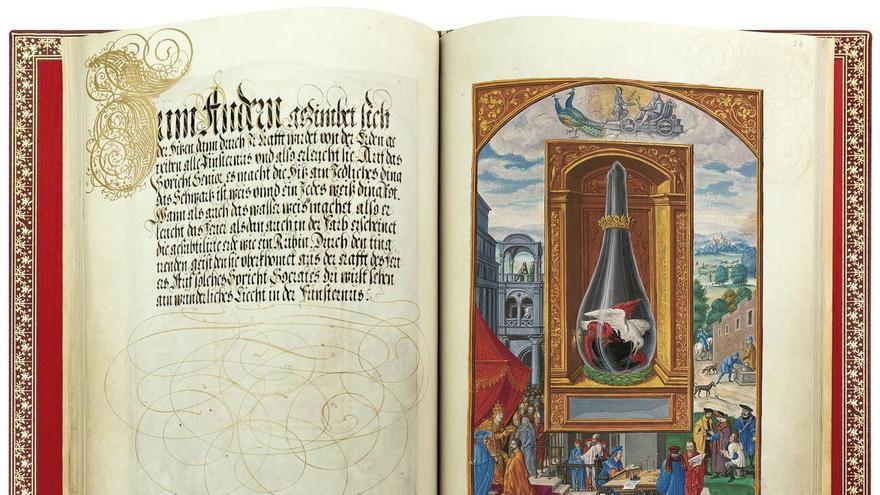 Zum Andern gezimbet sich
der hiken dann durch ir Krafft wirdet von der Erden ver
triben alle Finsternus und also erleucht sie. Auff das
Spricht Senior es macht die Hitz ain Jedliches ding
das Schwartz ist weis unnd ein Jedes weis ding Rot.
Wann als auch das wasser weis machet also er
leucht das Feuer als dan auch in der Farb erscheinet
die gesubtilirte erde wie ein Rubin Durch den ting
irenden geist den sie uberkhombt aus der Krafft des Feu
ers Auff solches Spricht Socrates du wirst sehen
ain wunderliches Liecht in der Finsternus:
24